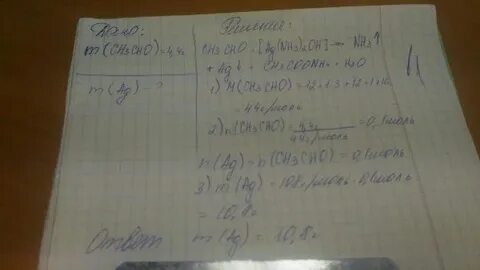 Дано:
m(CH3CHO)=4,4г
m(Ag)-?
Решение:
CH3CHO + [Ag(NH3)2OH] → NH3↑
+ Ag↓ + CH3COONH4 + H2O
1) M(CH3CHO) = 12+1·3+12+1+16=
= 44г/моль
2) n(CH3CHO) = 4,4г / 44г/моль = 0,1моль
n(Ag) = n(CH3CHO) = 0,1моль
3) m(Ag) = 108г/моль · 0,1моль
= 10,8г
Ответ m(Ag) = 10,8г